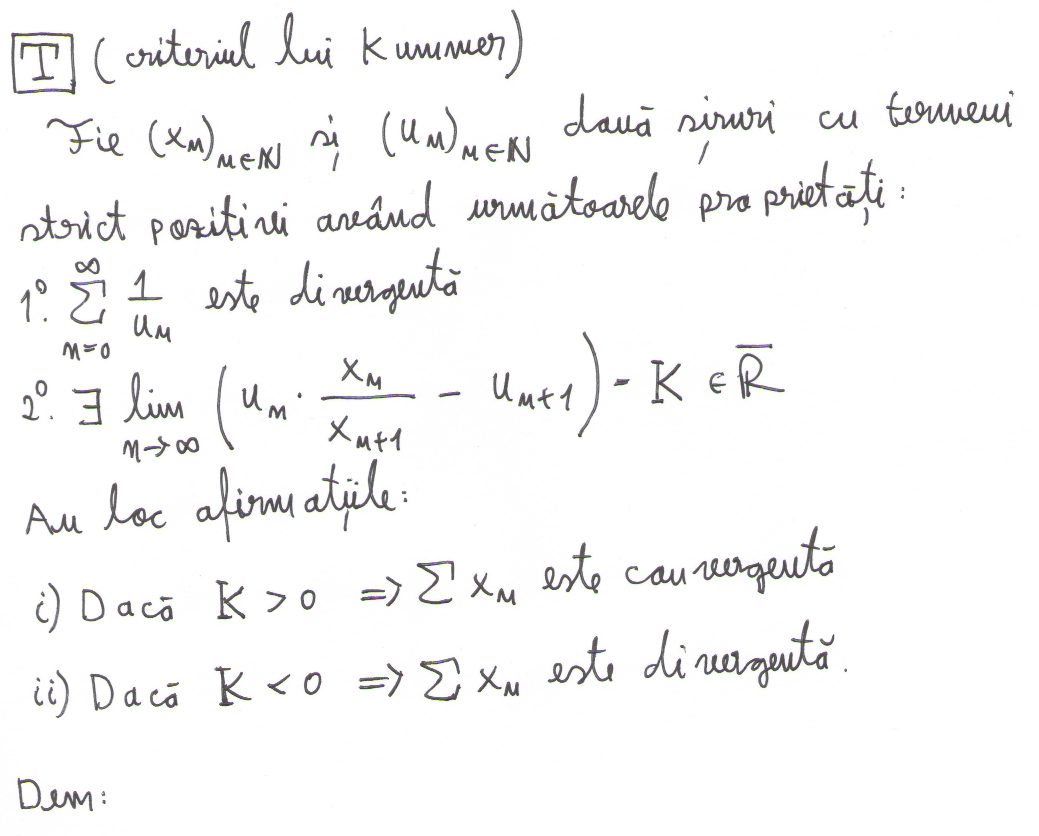 T (criteriul lui Kummer)
Fie (xₙ)ₙ∈ℕ și (uₙ)ₙ∈ℕ două șiruri cu termeni
strict pozitivi având următoarele proprietăți:
1°. ∑_{n=0}^{∞} 1/uₙ este divergentă
2°. ∃ lim_{n→∞} (uₙ · xₙ/xₙ₊₁ − uₙ₊₁) = K ∈ ℝ̅
Au loc afirmațiile:
i) Dacă K > 0 => ∑ xₙ este convergentă
ii) Dacă K < 0 => ∑ xₙ este divergentă.
Dem: